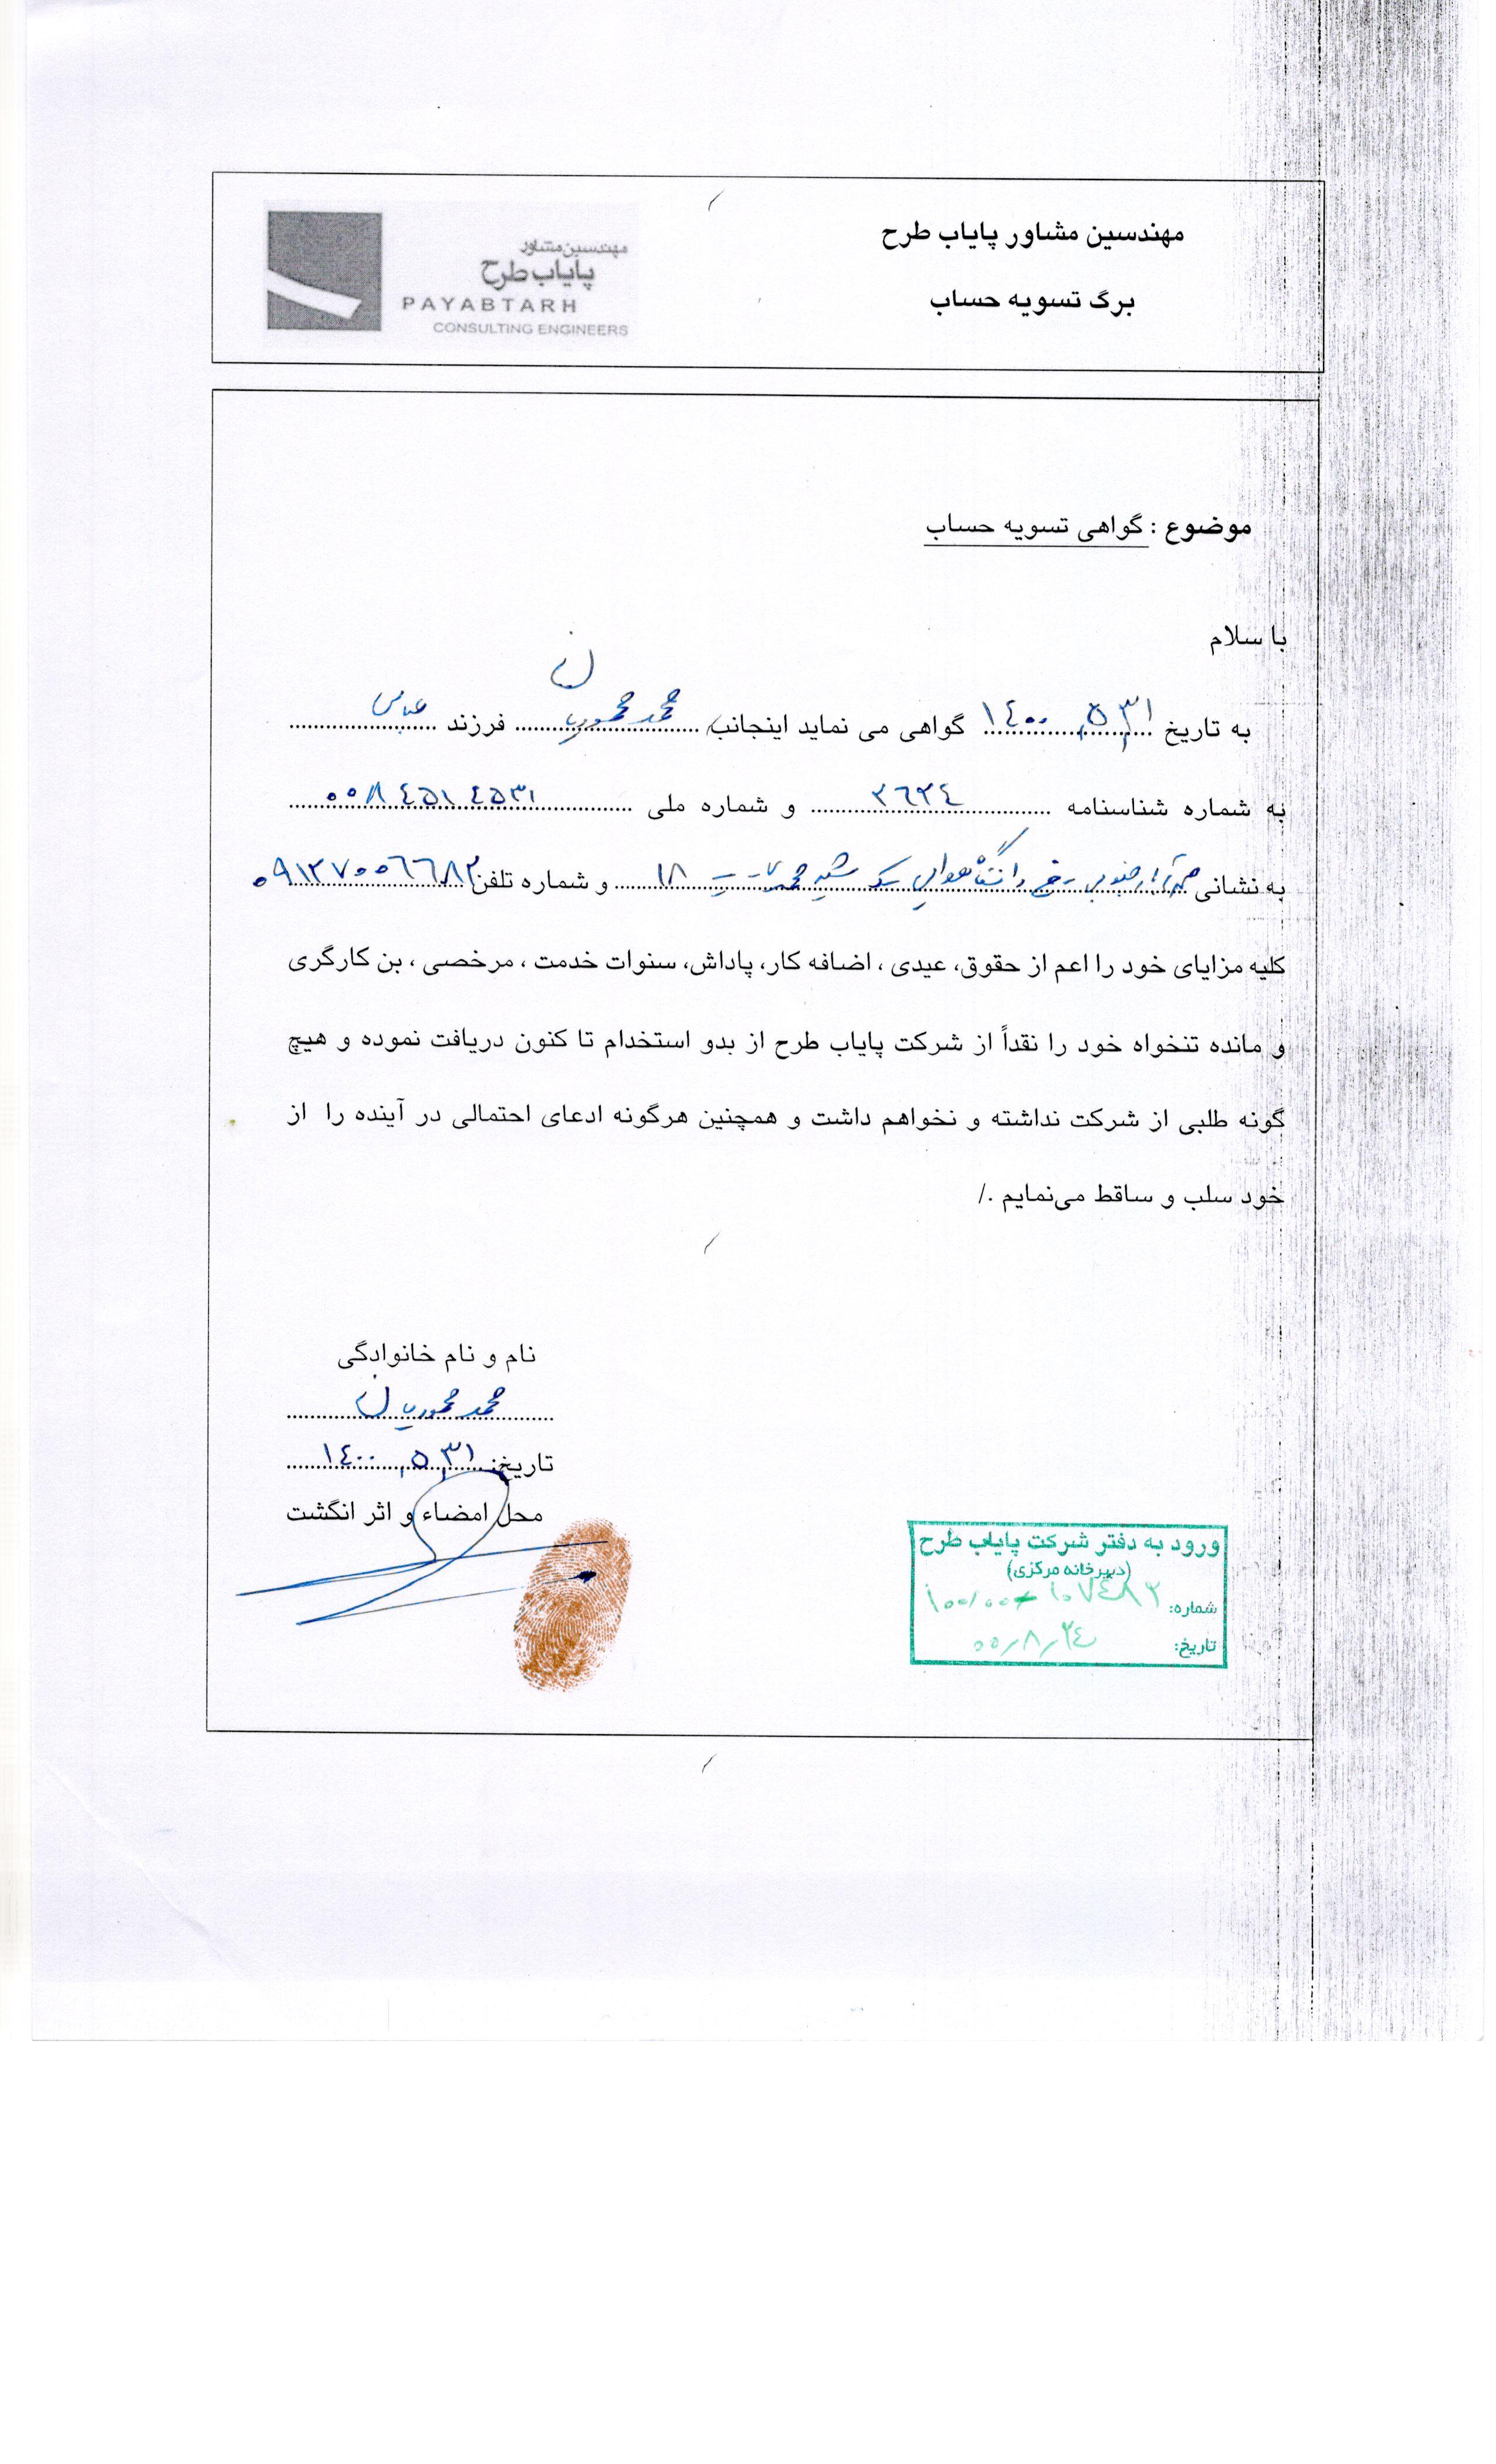 مهندسین مشاور پایاب طرح
برگ تسویه حساب
مهندسین مشاور
پایاب طرح
PAYABTARH
CONSULTING ENGINEERS
موضوع : گواهی تسویه حساب
با سلام
به تاریخ ۱۴۰۰/۵/۳۱ گواهی می نماید اینجانب محمد محمودیان فرزند عباس
به شماره شناسنامه ۳۶۳۴ و شماره ملی ۰۰۸۴۵۱۴۵۳۱
به نشانی ۱۸ و شماره تلفن ۰۹۱۲۷۰۰۶۶۸۲
کلیه مزایای خود را اعم از حقوق، عیدی ، اضافه کار، پاداش، سنوات خدمت ، مرخصی ، بن کارگری
و مانده تنخواه خود را نقداً از شرکت پایاب طرح از بدو استخدام تا کنون دریافت نموده و هیچ
گونه طلبی از شرکت نداشته و نخواهم داشت و همچنین هرگونه ادعای احتمالی در آینده را از
خود سلب و ساقط می‌نمایم ./
نام و نام خانوادگی
محمد محمودیان
تاریخ: ۱۴۰۰/۵/۳۱
محل امضاء و اثر انگشت
ورود به دفتر شرکت پایاب طرح
(دبیرخانه مرکزی)
شماره:
تاریخ: ۰۰/۸/۲۴